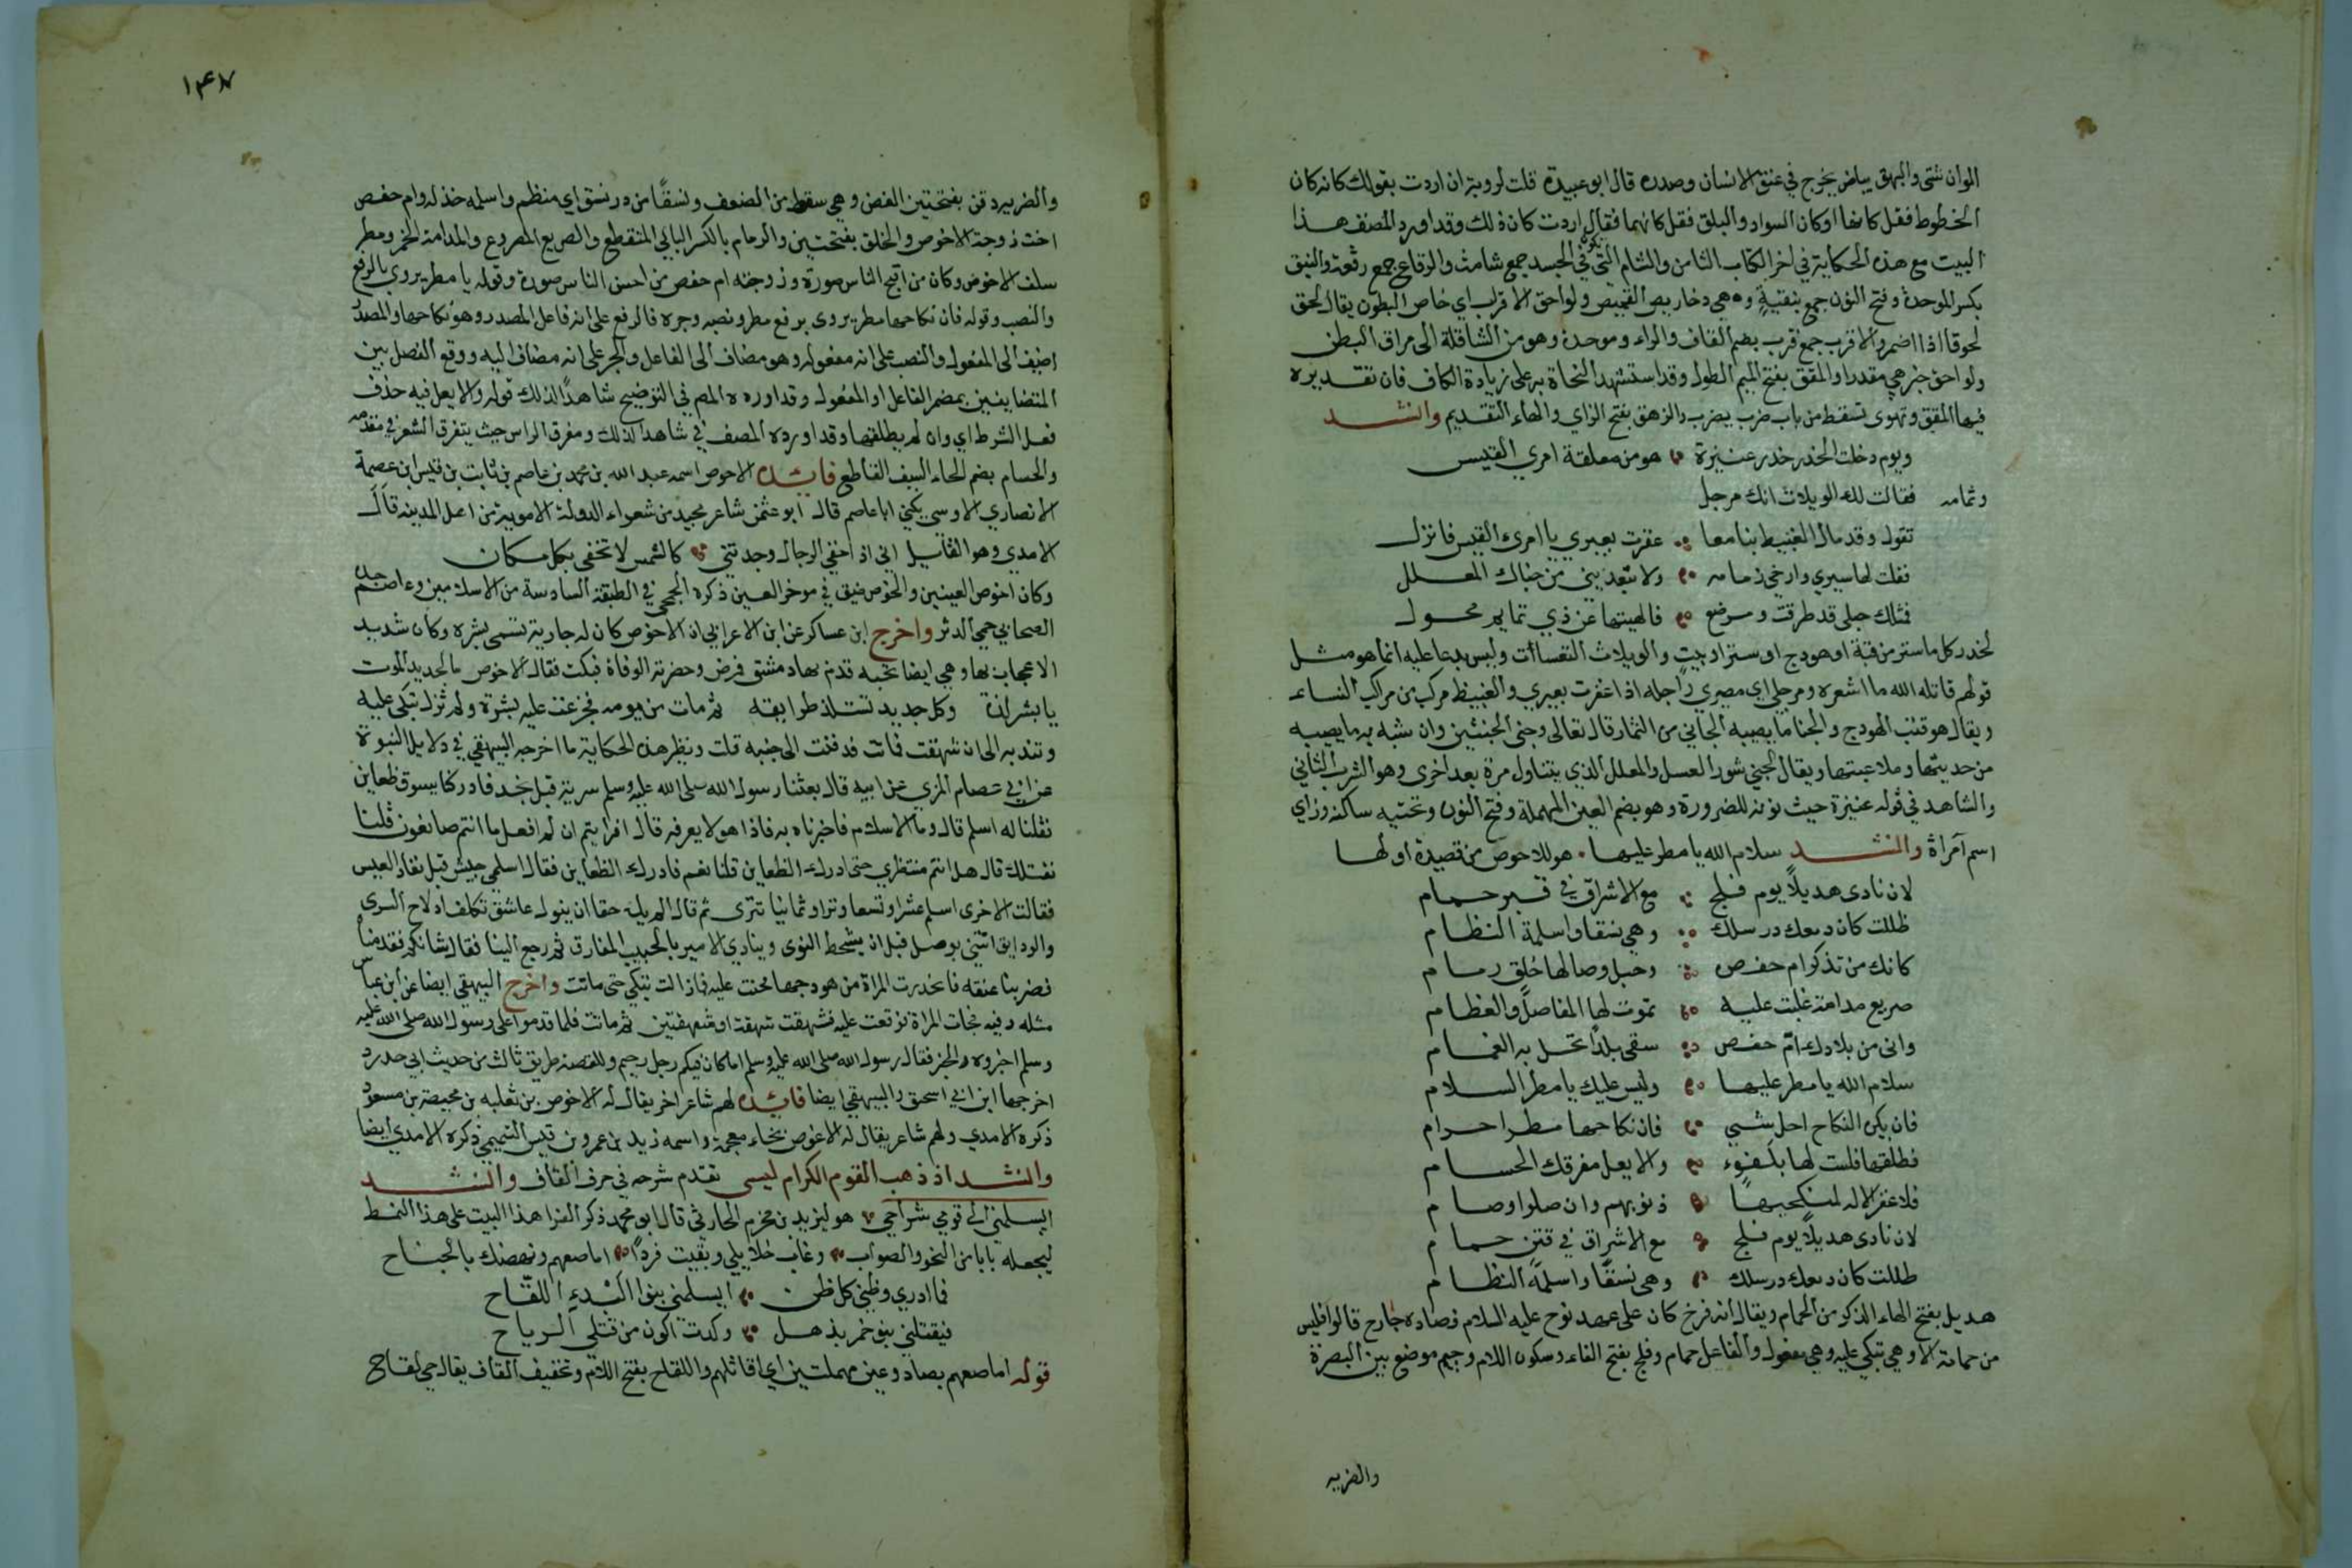 الوان شتى والبهق بياض يخرج في عنق الانسان وصدره قال ابو عبيدة قلت لروبة ان اردت بقولك كانه كان
الخطوط فقل كانها او كان السواد والبلق فقل كانهما فقال اردت كان ذلك وقد اورد المصنف هذا
البيت مع هذه الحكاية في اخر الكتاب الثامن والشام التي تكون في الجسد جمع شامة والرقاع جمع رقعة والبنق
بكسر الموحدة وفتح النون جمع بنقية وهي دخاريص القميص ولواحق الاقراب اي خماص البطون يقال لحق
لحوقا اذا اضمر والاقرب جمع قرب بضم القاف والراء وموحدة وهو من الشاقلة الى مراق البطن
ولواحق خبر هي مقدرا والمقق بفتح الميم الطول وقد استشهد النحاة به على زيادة الكاف فان تقديره
فيها المقق وتهوى تسقط من باب ضرب يضرب والزهق بفتح الزاي والهاء التقديم وانشد
ويوم دخلت الخدر خدر عنيزة هو من معلقة امري القيس
وتمامه فقالت لك الويلات انك مرجل
تقول وقد مال الغبيط بنا معا عقرت بعيري يا امرئ القيس فانزل
فقلت لها سيري وارخي زمامه ولا تبعديني من جناك المعلل
فمثلك حبلى قد طرقت ومرضع فالهيتها عن ذي تمايم محول
الخدر كل ما ستر من قبة او هودج او ستر او بيت والويلات التعسات وليس بدعا عليه انما هو مثل
قولهم قاتله الله ما اشعره ومرجلي اي مصيري راجلة اذا عقرت بعيري والغبيط مركب من مراكب النساء
ويقال هو قتب الهودج والجنا ما يصيبه الجاني من الثمار قال تعالى وجنى الجنتين وان شبه به ما يصيبه
من حديثها وملاعبتها ويقال الجني شور العسل والمعلل الذي يتناول مرة بعد اخرى وهو الشرب الثاني
والشاهد في قوله عنيزة حيث نونه للضرورة وهو بضم العين المهملة وفتح النون وتحتيه ساكنة وزاي
اسم امراة وانشد سلام الله يا مطر عليها هو للاحوص من قصيدة اولها
لان نادى هديلا يوم فلج مع الاشراق في قبر حمام
ظللت كان دمعك در سلك وهي نسقا واسلمة النظام
كانك من تذكر ام حفص وحبل وصالها خلق رمام
صريع مدامة غلبت عليه تموت لها المفاصل والعظام
واني من بلادك ام حفص سقى بلدا تحل به الغمام
سلام الله يا مطر عليها وليس عليك يا مطر السلام
فان يكن النكاح احل شي فان نكاحها مطرا حرام
فطلقها فلست لها بكفوء والا يعل مفرقك الحسام
فلا غفر الاله لمنكحيها ذنوبهم وان صلوا وصام
لان نادى هديلا يوم فلج مع الاشراق في قنن حمام
ظللت كان دمعك در سلك وهي نسقا واسلمة النظام
هديل بفتح الهاء الذكر من الحمام ويقال انه فرخ كان على عهد نوح عليه السلام فصاده جارح قالوا فليس
من حمامة الا وهي تبكي عليه وهي مفعول والفاعل حمام وفلج بفتح الفاء وسكون اللام وجيم موضع بين البصرة
والضريه
١٤٧
والضربيرد قنن بفتحتين الغصن وهي سقط من الضعف ونسقا من در نسق اي منظم واسلمه خذله وام حفص
اخت زوجة الاحوص والخلق بفتحتين والرمام بالكسر البالي المتقطع والصريع المصروع والمدامة الخمر ومطر
سلف الاحوص وكان من اقبح الناس صورة وزوجته ام حفص من احسن الناس صورة وقوله يا مطر يروي بالرفع
والنصب وقوله فان نكاحها مطر يروى برفع مطر ونصبه وجره فالرفع على انه فاعل المصدر وهو نكاحها والمصدر
اضيف الى المفعول والنصب على انه مفعوله وهو مضاف الى الفاعل والجر على انه مضاف اليه ووقع الفصل بين
المتضايفين بمضمر الفاعل او المفعول وقد اورده المص في التوضيح شاهدا لذلك قوله والا يعل فيه حذف
فعل الشرط اي وان لم يطلقها وقد اورده المصنف في شاهدا لذلك ومفرق الراس حيث يتفرق الشعر في مقدمه
والحسام بضم الحاء السيف القاطع فائدة الاحوص اسمه عبد الله بن محمد بن عاصم بن ثابت بن قيس ابن عصمة
الانصاري الاوسي يكنى ابا عاصم قال ابو عثمن شاعر مجيد من شعراء الدولة الاموية من اهل المدينة قال
الامدي وهو القايل اني اذ اخفي الرجال وجدتني كالشمس لا تخفى بكل مكان
وكان احوص العينين والحوص ضيق في موخر العين ذكره الجمحي في الطبقة السادسة من الاسلاميين وعاصم جده
الصحابي حمي الدبر واخرج ابن عساكر عن ابن الاعرابي ان الاحوص كان له جارية تسمى بشرة وكان شديد
الاعجاب بها وهي ايضا تحبه قدم بها دمشق فمرض وحضرته الوفاة فبكت فقال الاحوص ما لجديد الموت
يا بشر لذة وكل جديد تستلذ طرايقه ثم مات من يومه فجزعت عليه بشرة ولم تزل تبكي عليه
وتندبه الى ان شهقت فماتت فدفنت الى جنبه قلت ونظير هذه الحكاية ما اخرجه البيهقي في دلايل النبوة
عن ابن عصام المزني عن ابيه قال بعثنا رسول الله صلى الله عليه وسلم سرية قبل نجد فادركنا يسوق ظعاين
فقلنا له اسلم قال وما الاسلام فاخبرناه به فاذا هو لا يعرفه قال افرايتم ان لم افعل ما انتم صانعون قلنا
نقتلك قال هل انتم منتظري حتى ادرك الظعاين قلنا نعم فادرك الظعاين فقال اسلمي حبيش قبل نفاد العيس
فقالت الاخرى اسلم عشرا وتسعا وترا وثمانيا تترى ثم قال الم يك حقا ان ينول عاشق تكلف ادلاج السرى
والودايق اثيبي بوصل قبل ان يشحط النوى وينادي الامير بالحبيب المفارق ثم رجع الينا فقال شانكم فقدمناه
فضربنا عنقه فانحدرت المراة من هودجها فحنت عليه فما زالت تبكي حتى ماتت واخرج البيهقي ايضا عن ابن عباس
مثله وفيه فجات المراة فوقعت عليه فشهقت شهقة او شهقتين ثم ماتت فلما قدموا على رسول الله صلى الله عليه
وسلم اخبروه الخبر فقال رسول الله صلى الله عليه وسلم اما كان فيكم رجل رحيم وللقصة طريق ثالث من حديث ابي حدرد
اخرجها ابن ابي اسحق والبيهقي ايضا فائدة لهم شاعر اخر يقال له الاحوص بن ثعلبه بن محيصة بن مسعود
ذكره الامدي ولهم شاعر يقال له الاخوص بخاء معجمة واسمه زيد بن عمرو بن قيس التميمي ذكره الامدي ايضا
وانشد اذ ذهب القوم الكرام ليسي تقدم شرحه في حرف القاف وانشد
ايسلمني الى قومي شراحي هو ليزيد بن مخرم الحارثي قال ابو محمد ذكر الفرا هذا البيت على هذا النمط
ليجعله بابا من النحو والصواب وغاب خلايلي وبقيت فردا اماصعهم ونهضك بالجناح
فما ادري وظني كل ظن ايسلمني بنو البدء اللقاح
فيقتلني بنو خمر بذهل وكدت اكون من قتلى الرياح
قوله اماصعهم بصاد وعين مهملتين اي اقاتلهم واللقاح بفتح اللام وتخفيف القاف يقال حي لقاح